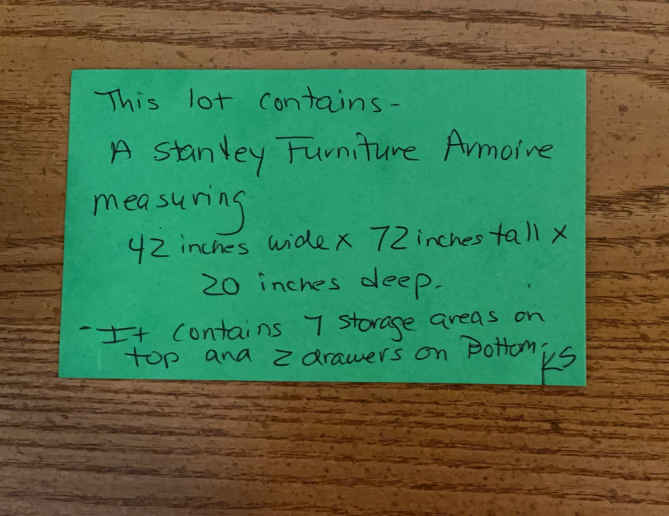 This lot contains-
A Stanley Furniture Armoire
measuring
42 inches wide x 72 inches tall x
20 inches deep.
- It contains 7 storage areas on
top and 2 drawers on Bottom. KS